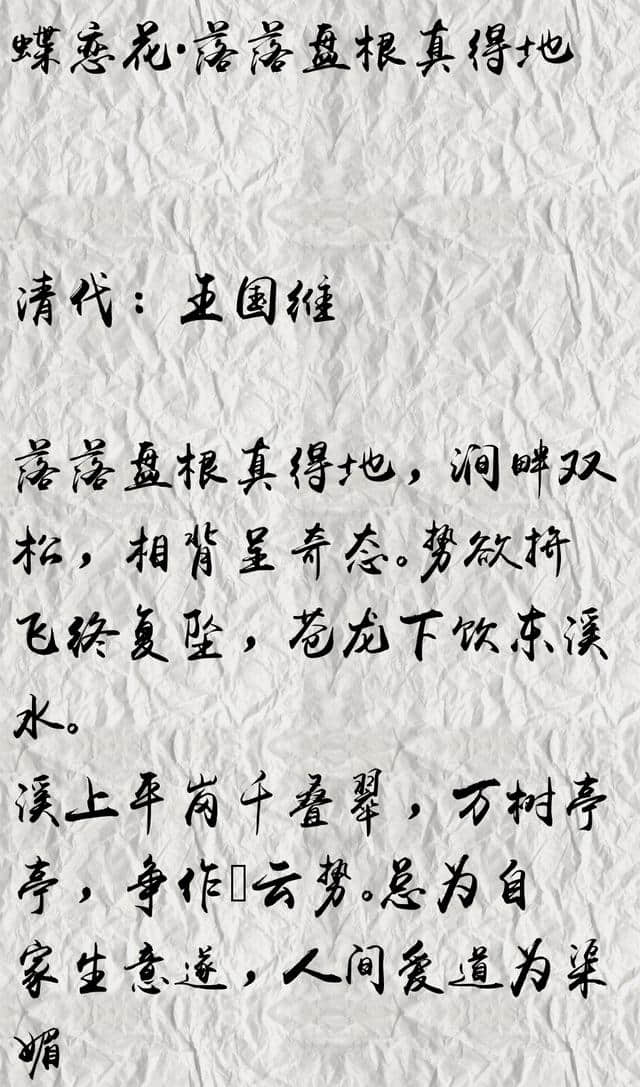 蝶恋花·落落盘根真得地
清代：王国维
落落盘根真得地，涧畔双
松，相背呈奇态。势欲拚
飞终复坠，苍龙下饮东溪
水。
溪上平岗千叠翠，万树亭
亭，争作▯云势。总为自
家生意遂，人间爱道为渠
媚